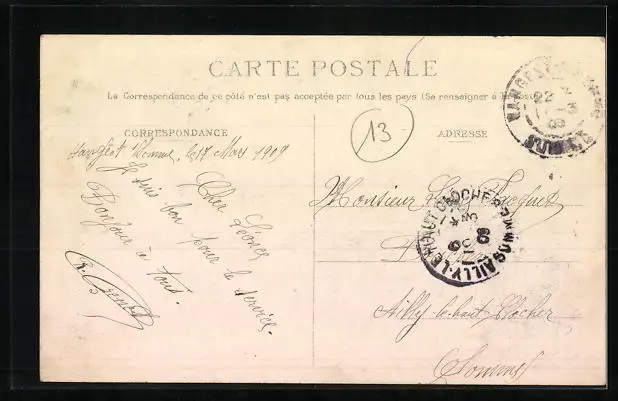 CARTE POSTALE
La Correspondance de ce côté n'est pas acceptée par tous les pays (Se renseigner à la Poste)
CORRESPONDANCE
ADRESSE
13
Hangest Somme, le 17 Mars 1909
Cher Léonce
Je suis bon pour le service.
Bonjour à tous.
Monsieur
Ailly-le-haut-Clocher
Somme
HANGEST
22
3
09
SOMME
AILLY-LE-HAUT-CLOCHER
SOMME
09